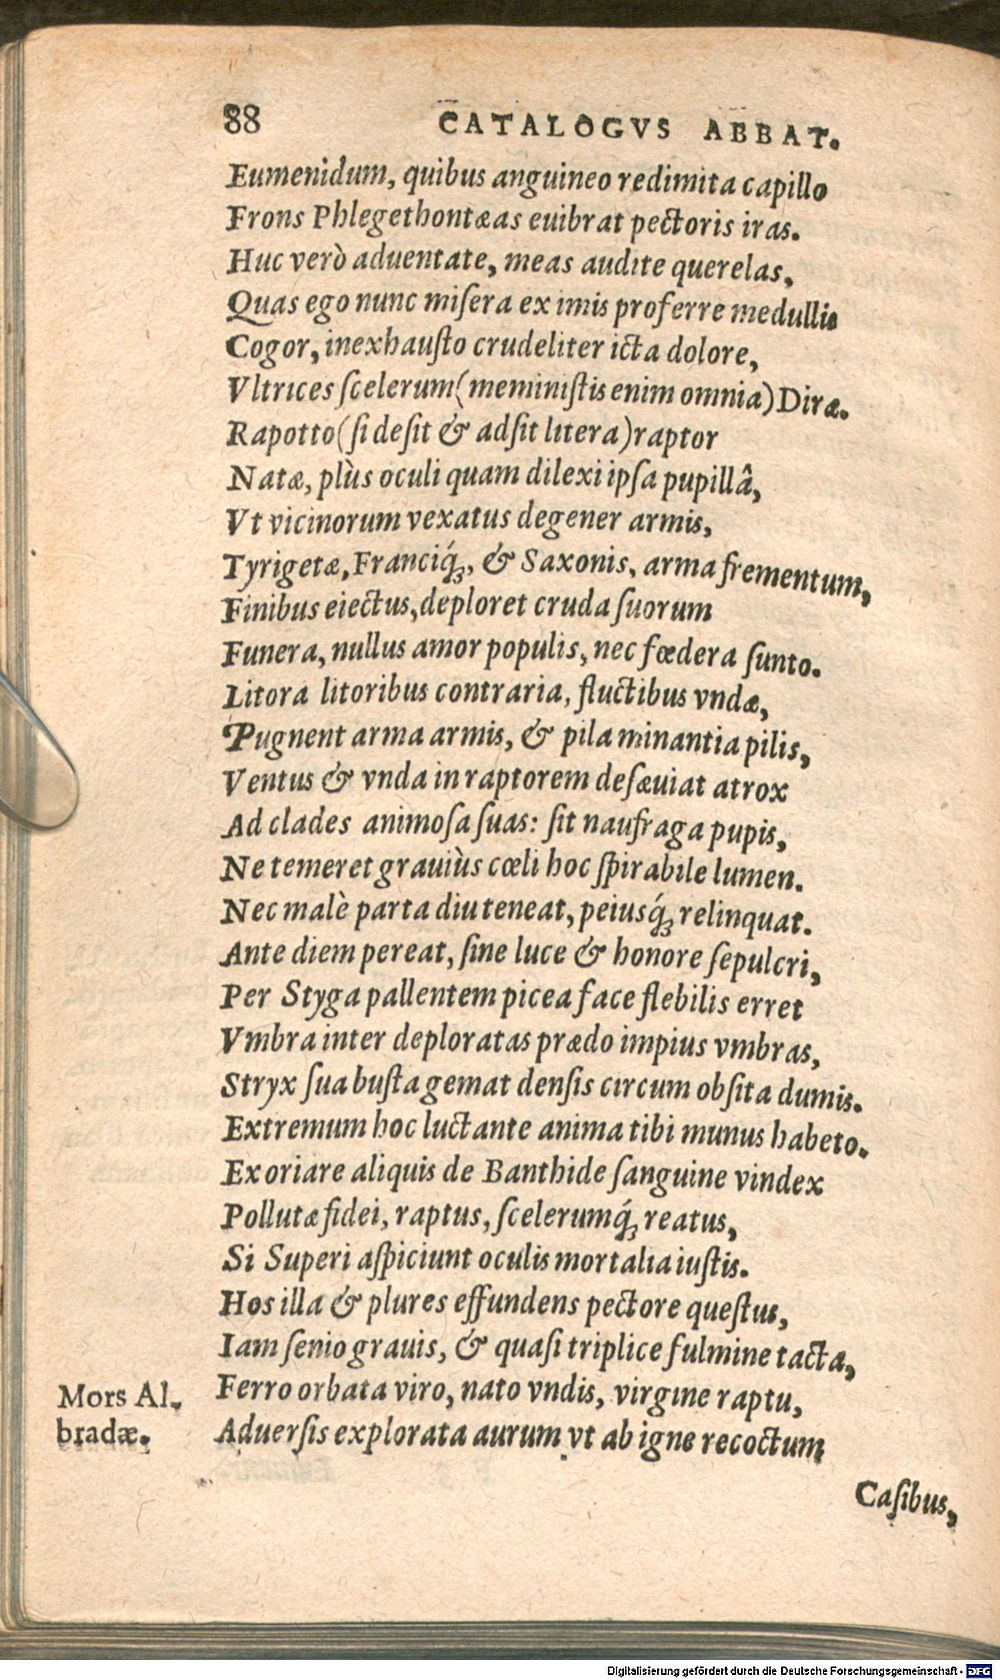 88 CATALOGVS ABBAT.
Eumenidum, quibus anguineo redimita capillo
Frons Phlegethontæas euibrat pectoris iras.
Huc verò aduentate, meas audite querelas,
Quas ego nunc miſera ex imis proferre medullis
Cogor, inexhauſto crudeliter icta dolore,
Vltrices ſcelerum (meminiſtis enim omnia) Diræ.
Rapotto (ſi deſit & adſit litera) raptor
Natæ, plùs oculi quam dilexi ipſa pupillâ,
Vt vicinorum vexatus degener armis,
Tyrigetæ, Franciq́ꝫ, & Saxonis, arma frementum,
Finibus eiectus, deploret cruda ſuorum
Funera, nullus amor populis, nec fœdera ſunto.
Litora litoribus contraria, fluctibus vndæ,
Pugnent arma armis, & pila minantia pilis,
Ventus & vnda in raptorem deſæuiat atrox
Ad clades animoſa ſuas: ſit naufraga pupis,
Ne temeret grauiùs cœli hoc ſpirabile lumen.
Nec malè parta diu teneat, peiusq́ꝫ relinquat.
Ante diem pereat, ſine luce & honore ſepulcri,
Per Styga pallentem picea face flebilis erret
Vmbra inter deploratas prædo impius vmbras,
Stryx ſua buſta gemat denſis circum obſita dumis.
Extremum hoc luctante anima tibi munus habeto.
Exoriare aliquis de Banthide ſanguine vindex
Pollutæ fidei, raptus, ſcelerumq́ꝫ reatus,
Si Superi aſpiciunt oculis mortalia iuſtis.
Hos illa & plures effundens pectore queſtus,
Iam ſenio grauis, & quaſi triplice fulmine tacta,
Mors Al- Ferro orbata viro, nato vndis, virgine raptu,
bradæ. Aduerſis explorata aurum vt ab igne recoctum
Caſibus,
Digitalisierung gefördert durch die Deutsche Forschungsgemeinschaft - DFG